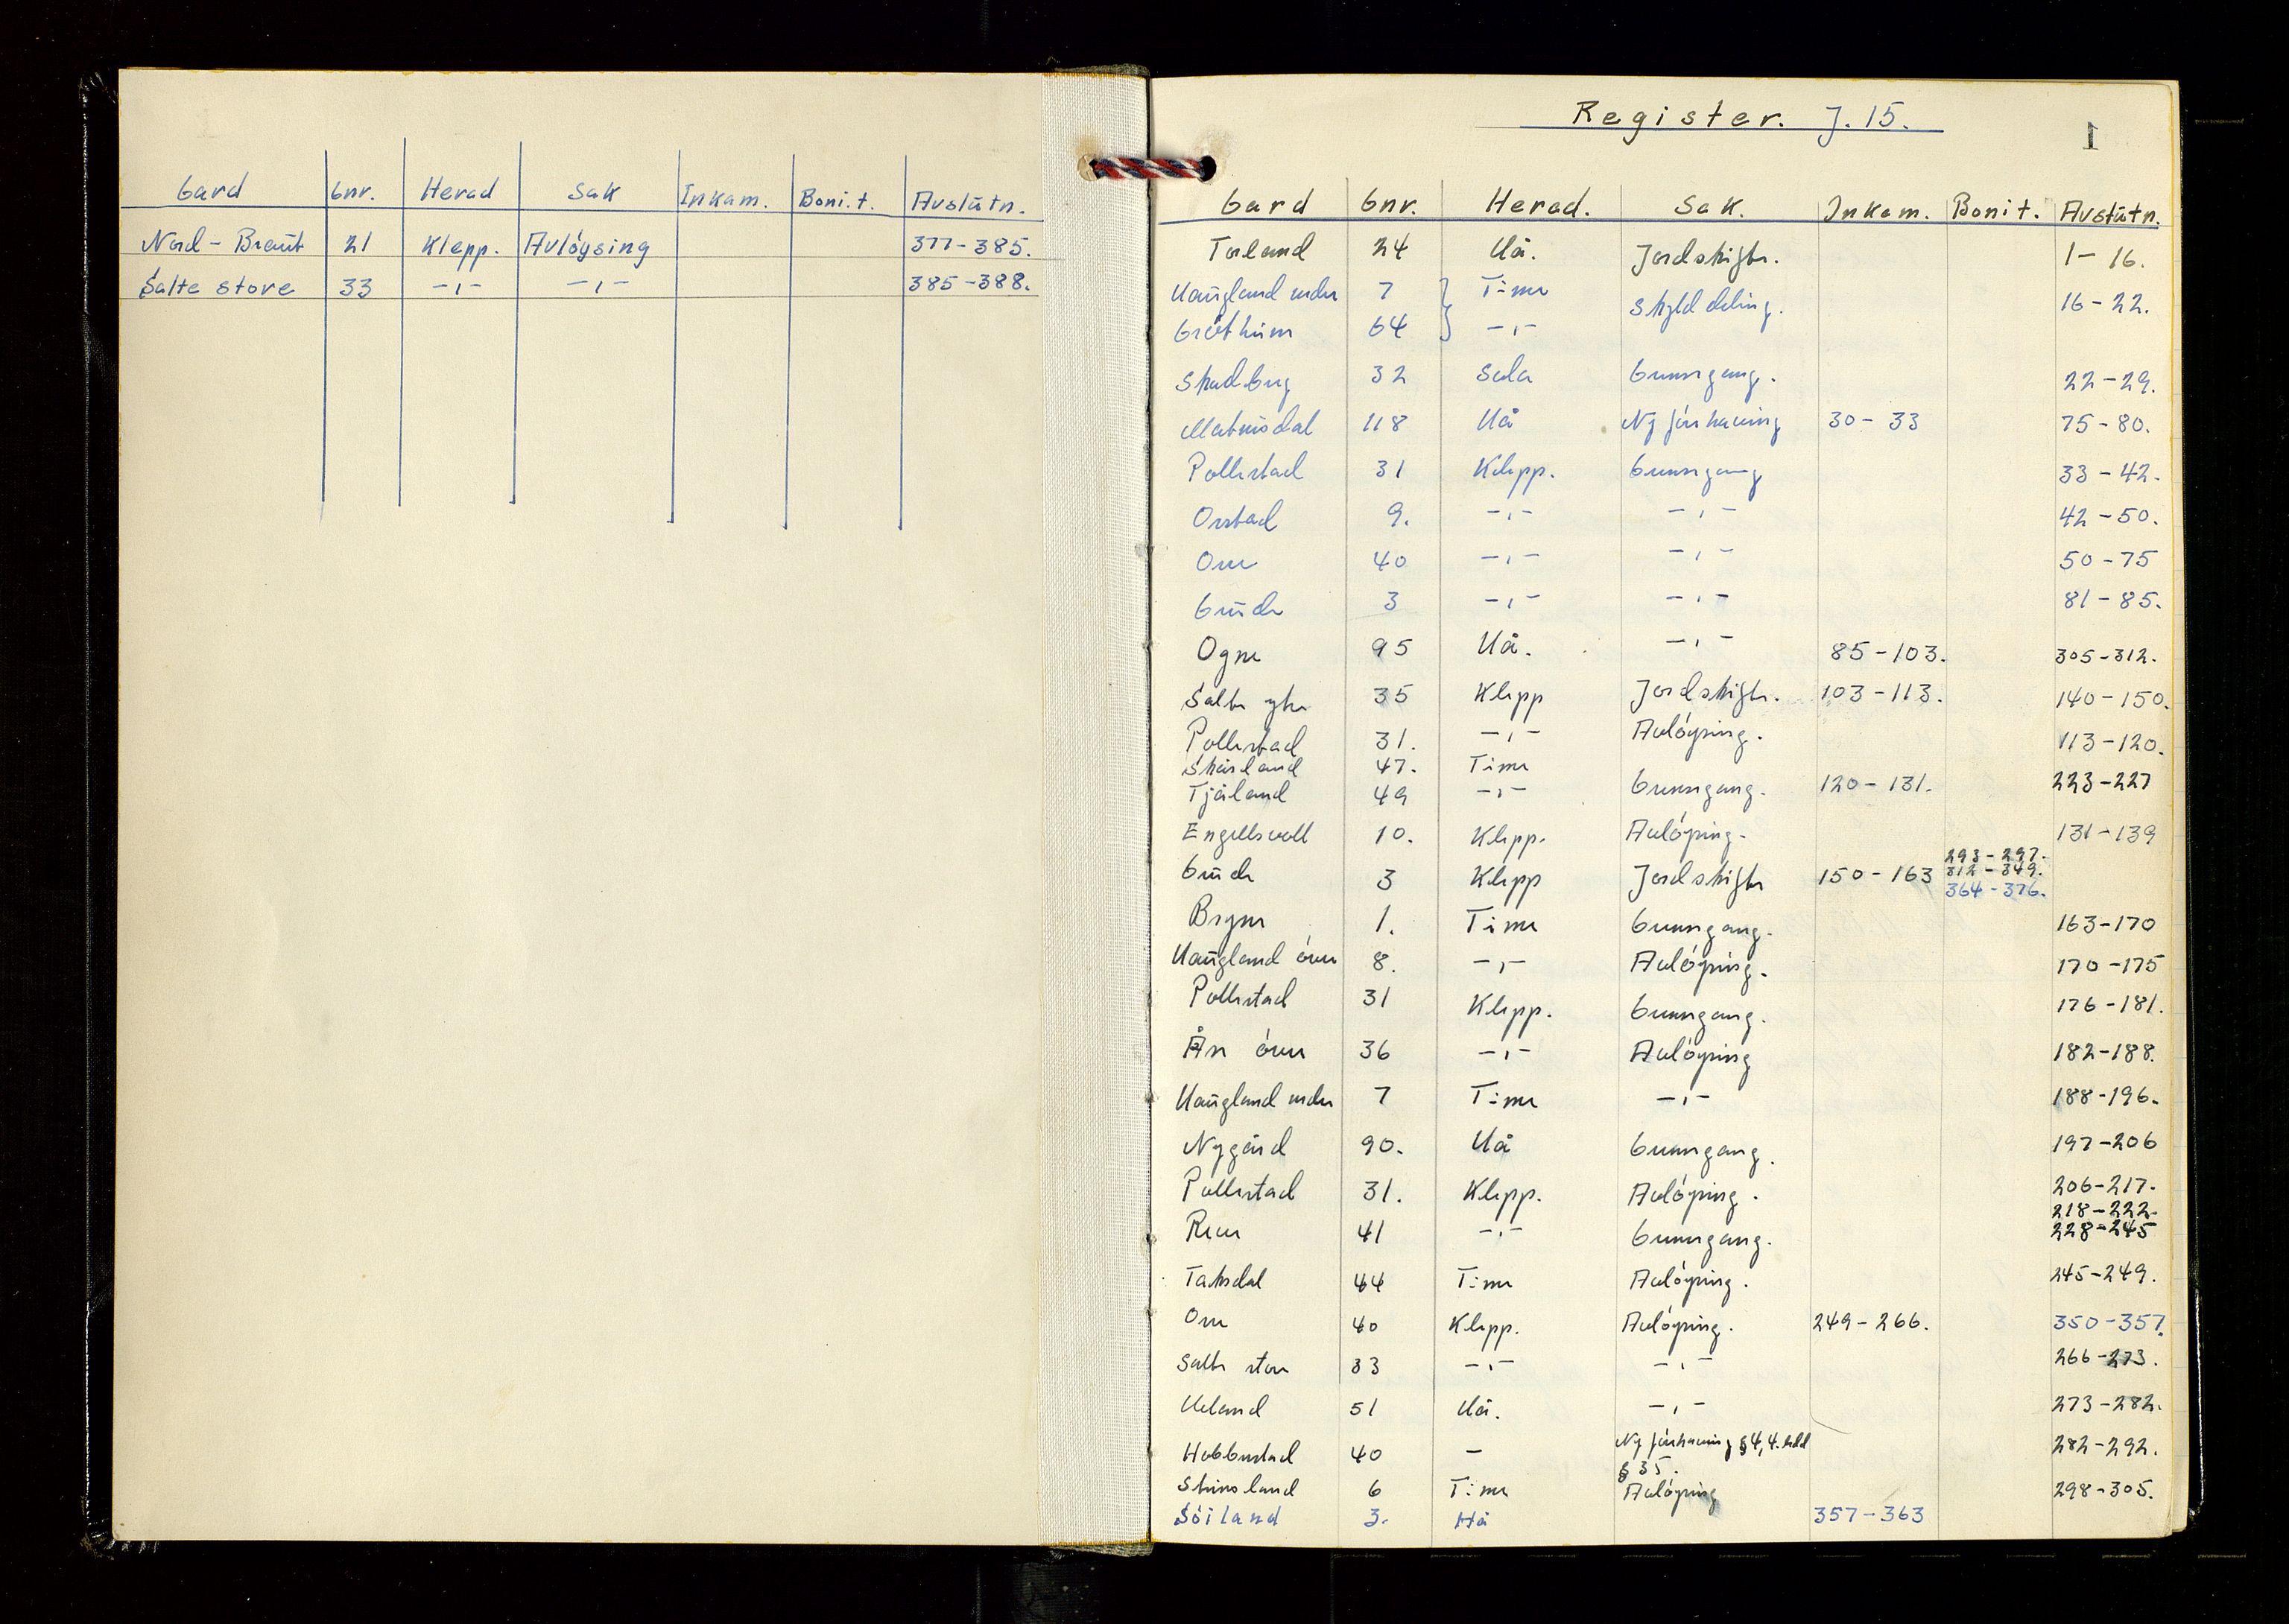 Gard Gnr. Herad Sak Inkam. Bonit. Avslutn.
Nord-Braut 21 Klepp. Avløysing 377-385.
Salte store 33 -,- -,- 385-388.
Register. J. 15.
1
Gard Gnr. Herad. Sak. Inkam. Bonit. Avslutn.
Torland 24 Hå. Jordskifte. 1-16.
Haugland nedre 7 Time Skylddeling. 16-22.
Grøthem 64 -,-
Skadberg 32 Sola Grensegang. 22-29.
Matnisdal 118 Hå Ny jonhaving 30-33 75-80.
Pollestad 31 Klepp. Grensegang 33-42.
Orstad 9. -,- -,- 42-50.
Orre 40 -,- -,- 50-75
Grude 3 -,- -,- 81-85.
Ogne 95 Hå. -,- 85-103. 305-312.
Salte ytre 35 Klepp Jordskifte. 103-113. 140-150.
Pollestad 31. -,- Avløysing. 113-120.
Skårland 47. Time
Tjåland 49 -,- Grensegang. 120-131. 223-227
Engelsvoll 10. Klepp. Avløysing. 131-139
Grude 3 Klepp Jordskifte 150-163 293-297. 312-349. 364-376.
Bryne 1. Time Grensegang. 163-170
Haugland øvre 8. -,- Avløysing. 170-175
Pollestad 31 Klepp. Grensegang. 176-181.
Åse øvre 36 -,- Avløysing 182-188.
Haugland nedre 7 Time -,- 188-196.
Nygård 90. Hå Grensegang. 197-206
Pollestad 31. Klepp. Avløysing. 206-217.
218-222.
Reve 41 -,- Grensegang. 228-245
Taksdal 44 Time Avløysing. 245-249.
Orre 40 Klepp. Avløysing. 249-266. 350-357.
Salte store 33 -,- -,- 266-273.
Ueland 51 Hå. -,- 273-282.
Hobberstad 40 - Ny jonhaving § 4, 4. ledd 282-292.
§ 35.
Steinsland 6 Time Avløysing 298-305.
Søiland 3. Hå 357-363